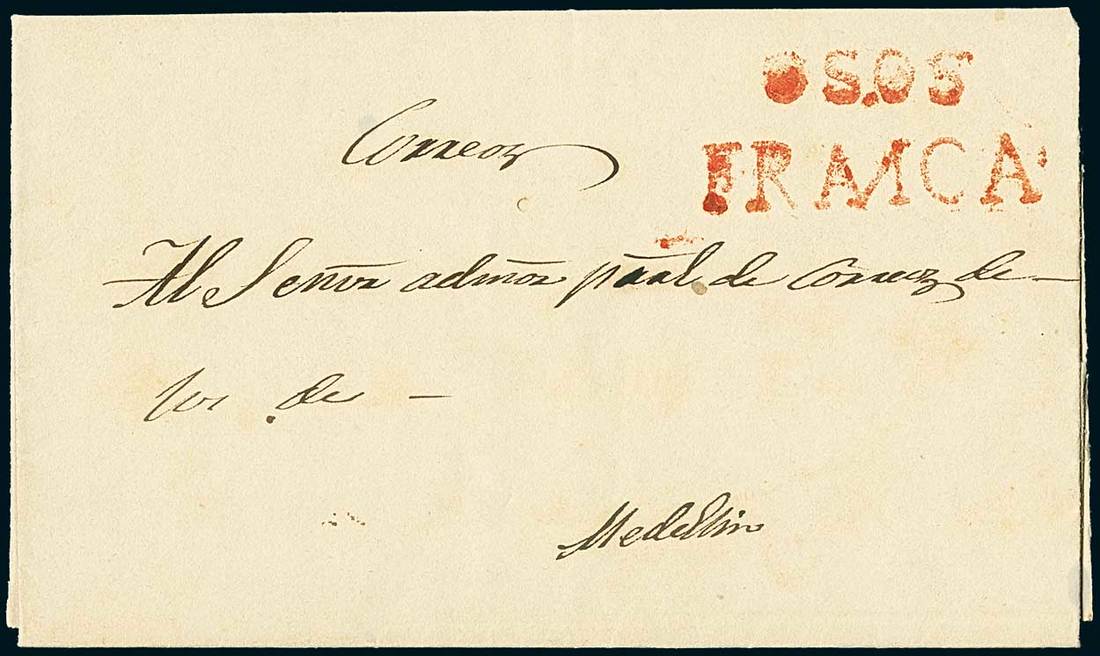 OSOS
FRANCA
Correos
Al Señor admor pãal de Correos de
los de
Medellin